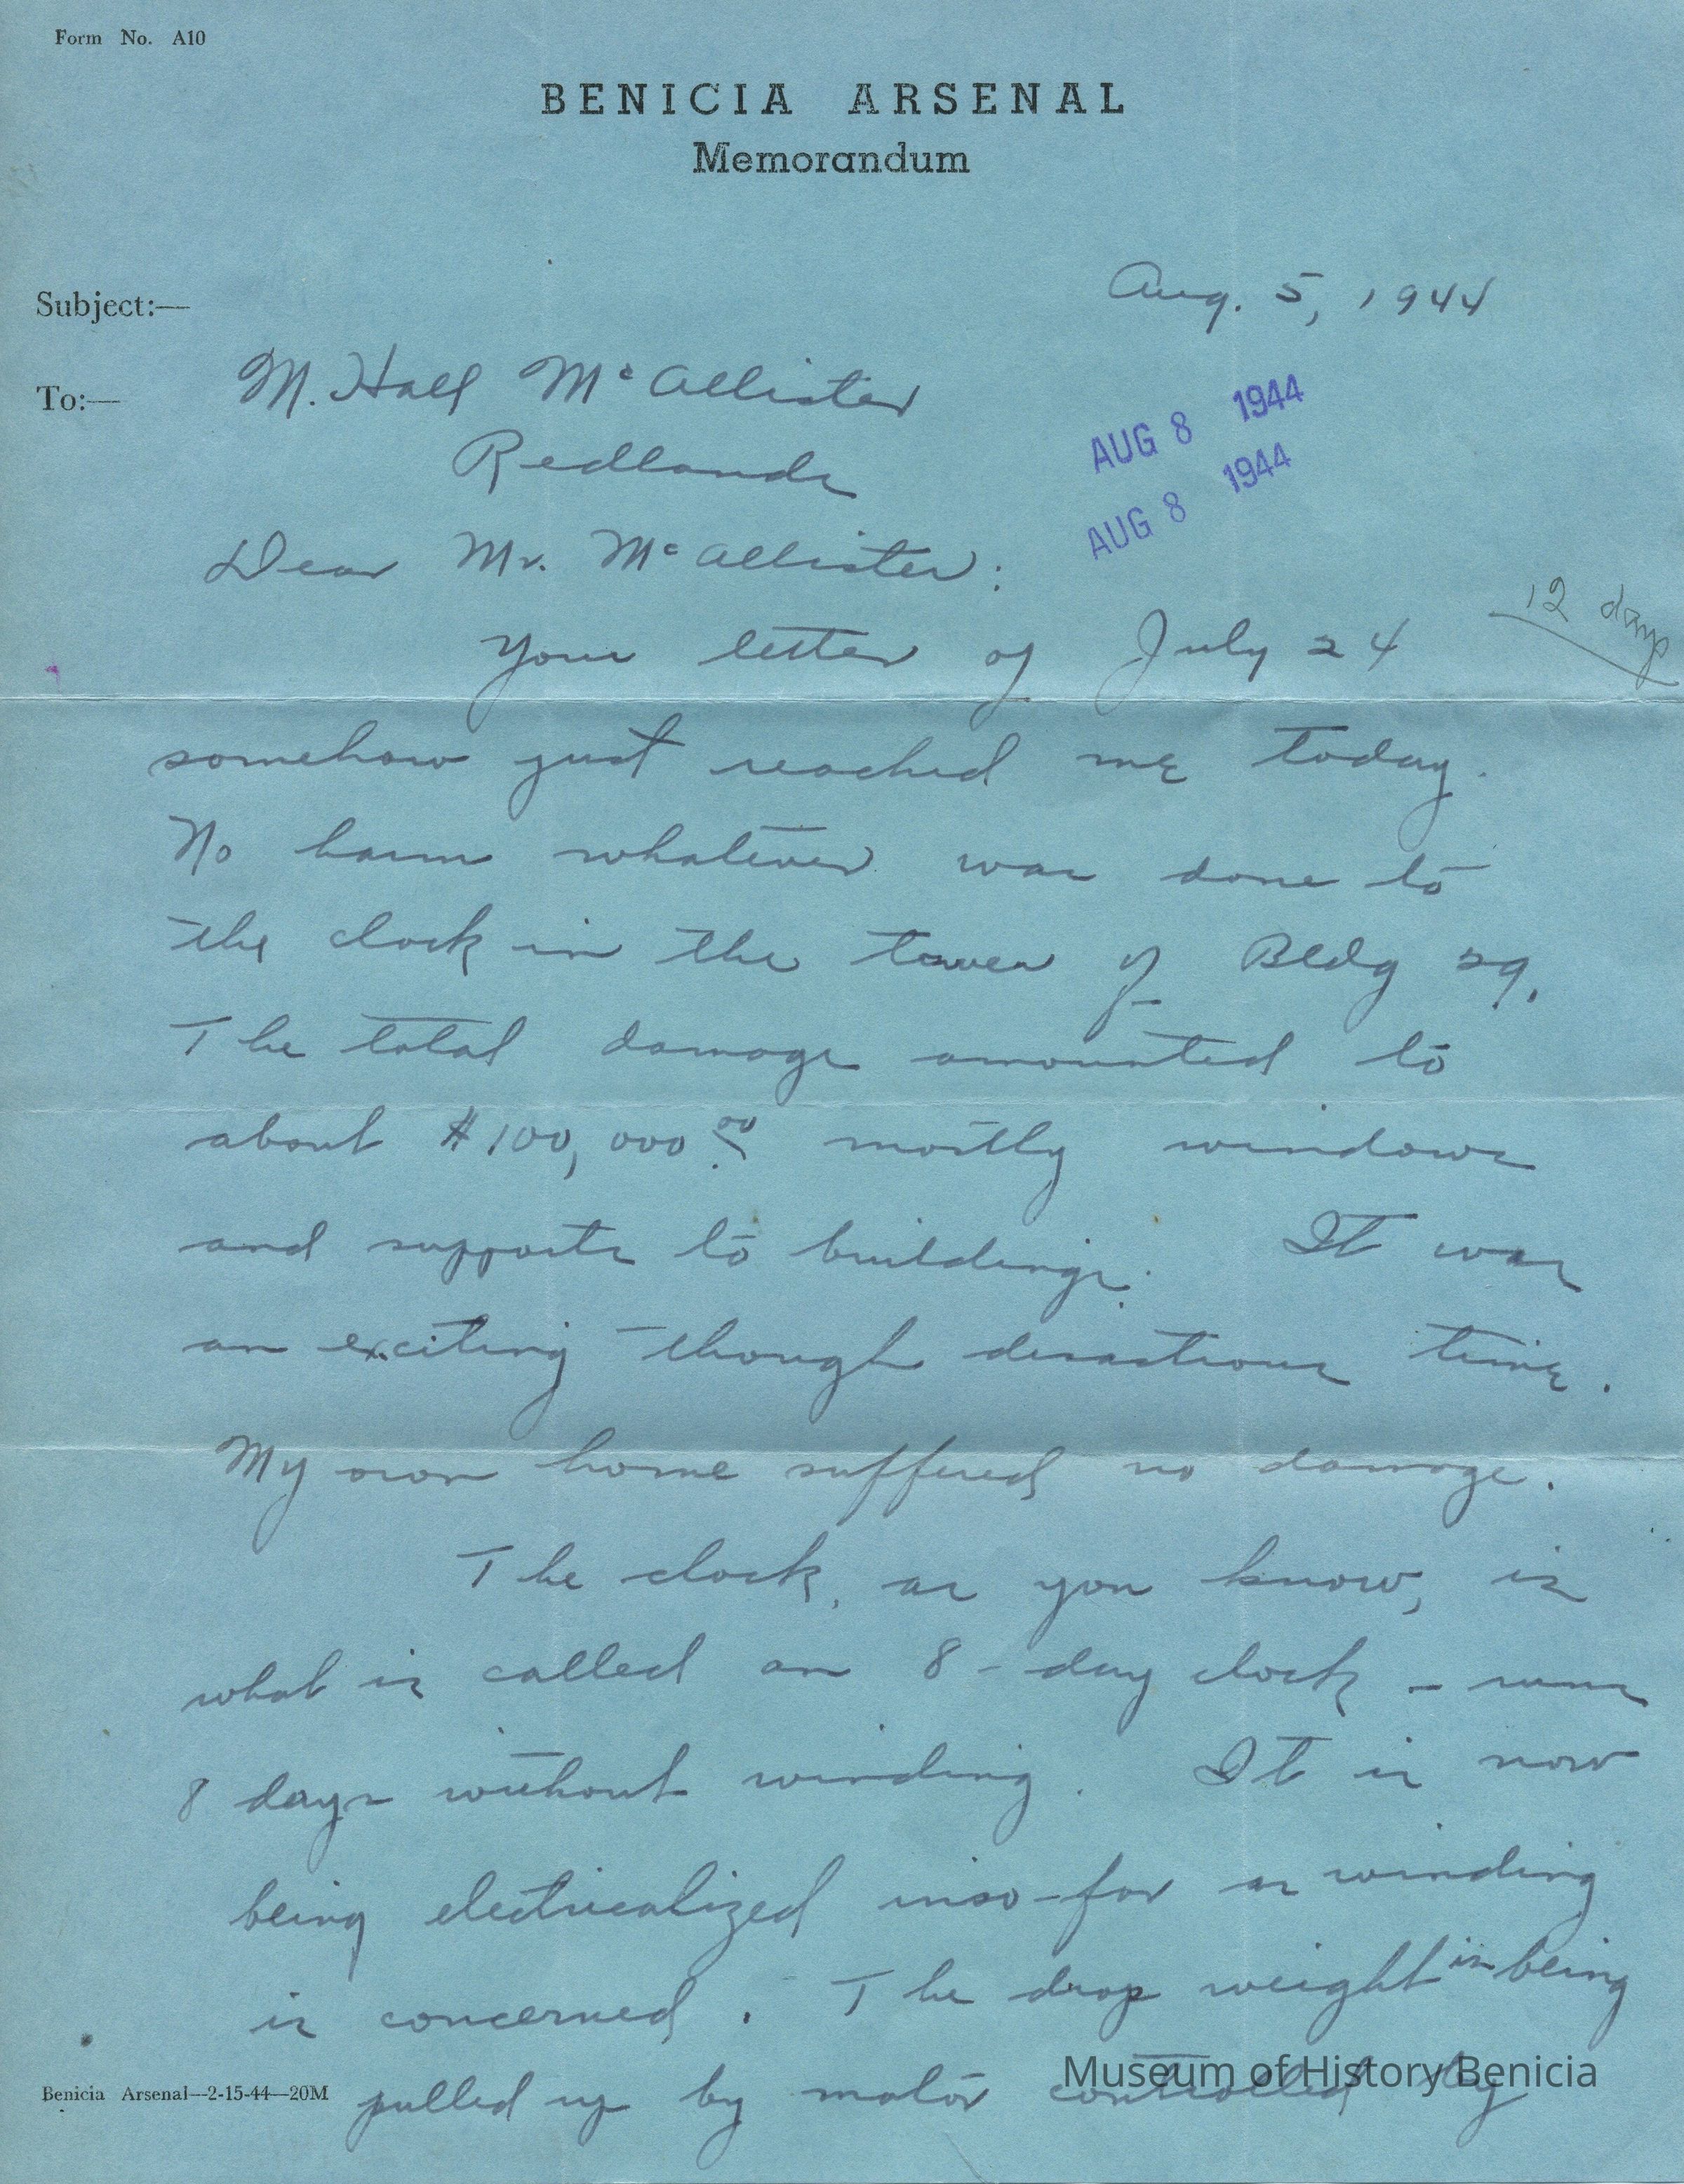 Form No. A10
BENICIA ARSENAL
Memorandum
Aug. 5, 1944
Subject:—
To:— M. Hall McAllister
Redlands
AUG 8 1944
AUG 8 1944
Dear Mr. McAllister:
12 days
Your letter of July 24
somehow just reached me today.
No harm whatever was done to
the clock in the tower of Bldg 29.
The total damage amounted to
about $100,000.00 mostly windows
and supports to buildings. It was
an exciting though disastrous time.
My own home suffered no damage.
The clock, as you know, is
what is called an 8-day clock - runs
8 days without winding. It is now
being electricalized inso-far as winding
is concerned. The drop weight is being
pulled up by motor controlled by
Museum of History Benicia
Benicia Arsenal—2-15-44—20M